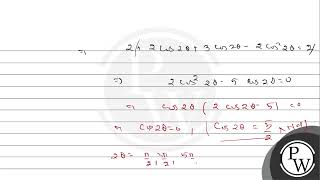 ⇒ 2/ + 2 cos 2θ + 3 cos 2θ - 2 cos² 2θ = 2/
⇒ 2 cos² 2θ - 5 cos 2θ = 0
⇒ cos 2θ ( 2 cos 2θ - 5 ) = 0
⇒ cos 2θ = 0, ( cos 2θ = 5/2
2θ = π/2, 3π/2, 5π
PW